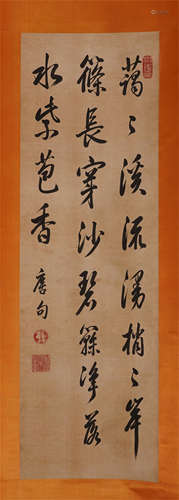 藹〻溪流漫梢〻岸
篠長穿沙碧簳淨落
水紫苞香
唐句